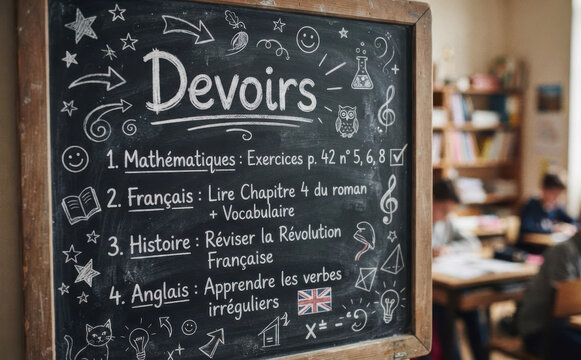 Devoirs
1. Mathématiques : Exercices p. 42 n° 5, 6, 8
2. Français : Lire Chapitre 4 du roman
+ Vocabulaire
3. Histoire : Réviser la Révolution
Française
4. Anglais : Apprendre les verbes
irréguliers